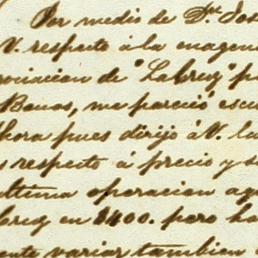 Por medio de Dn. Jos
V. respecto á la enagena
ociacion de "Labrug" p
Baños, me pareció escu
hora pues dirijo á V. la
respecto á precio y s
ultima operacion aq
brug en 3400. pero ha
ente variar tambien